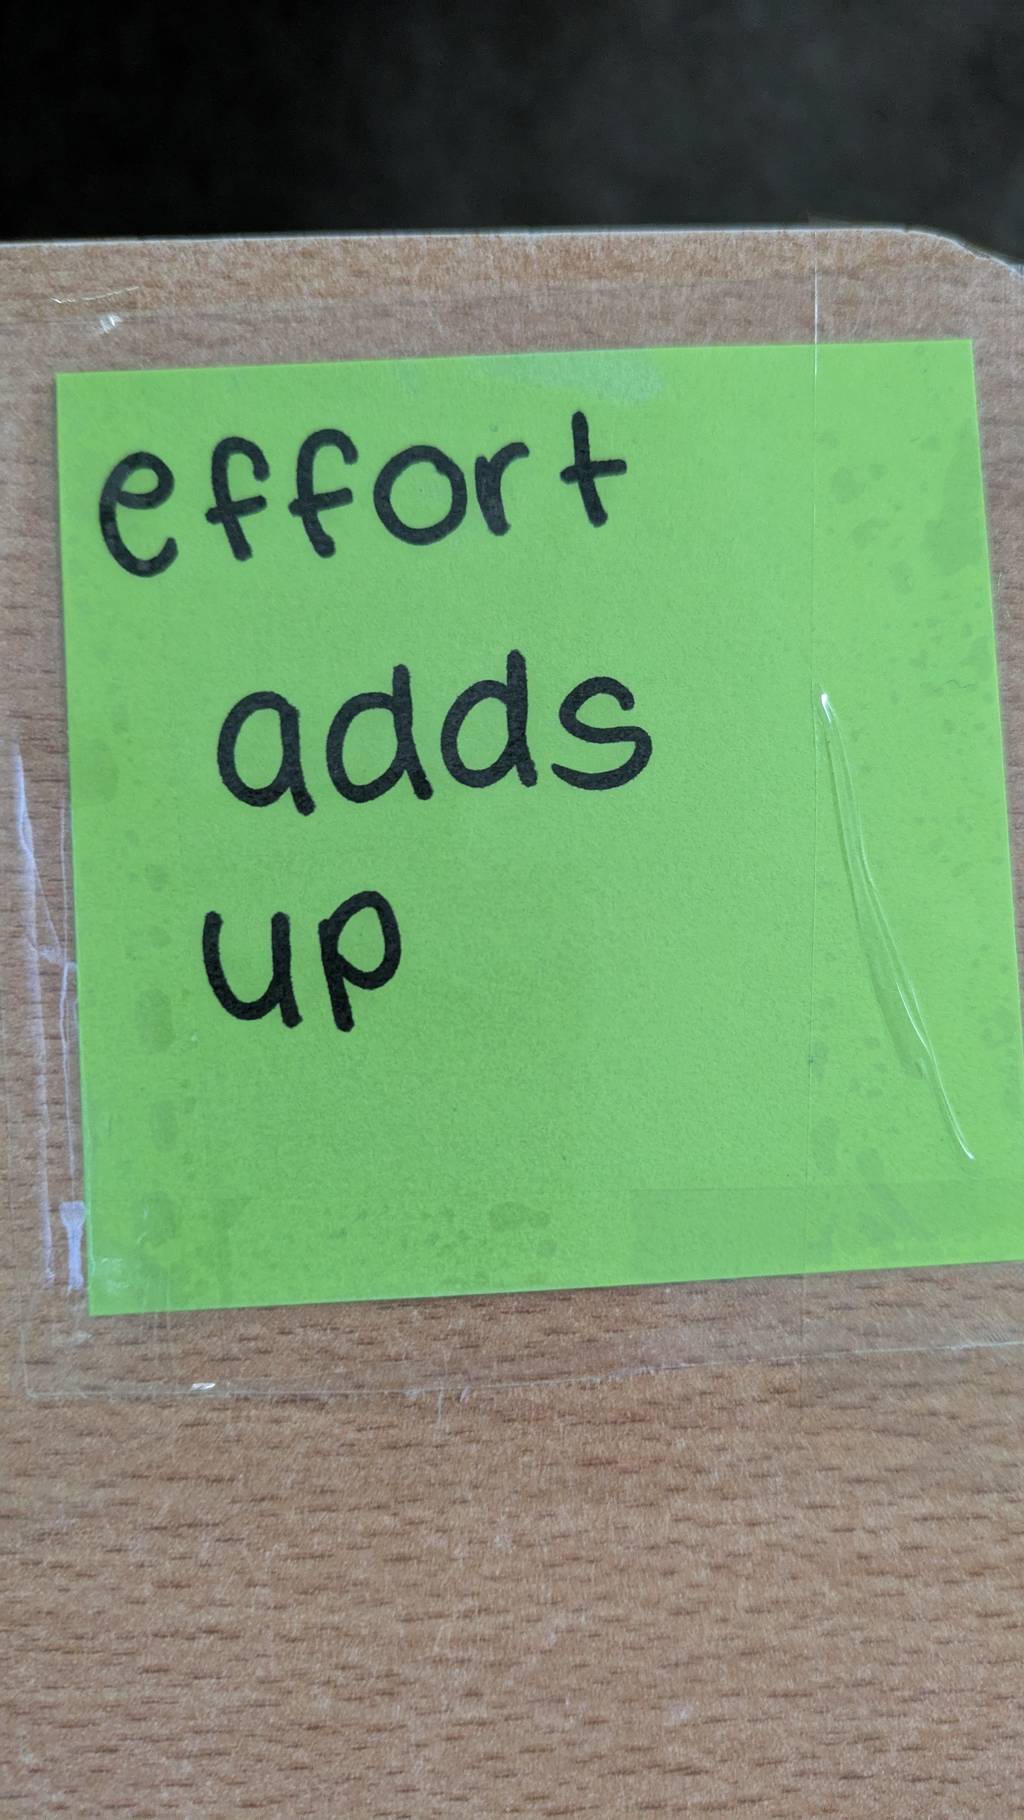 effort
adds
up